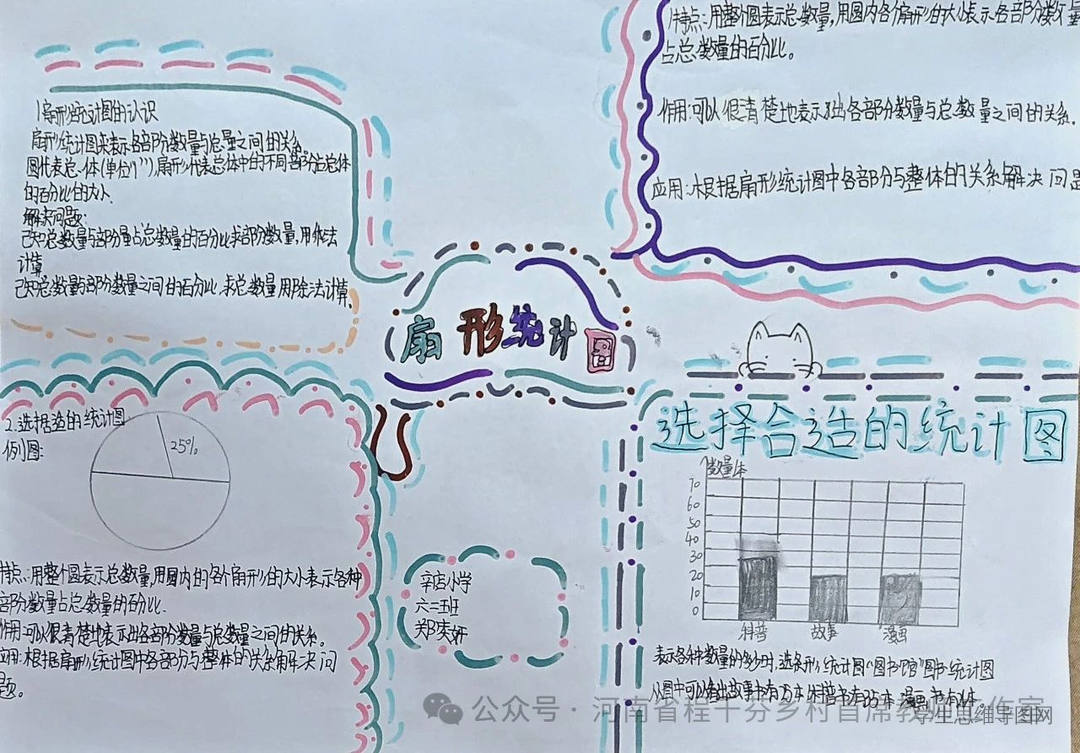 1扇形统计图的认识
扇形统计图来表示各部分数量与总量之间的关系。
圆代表总体(单位"1"),扇形代表总体中的不同部分占总体
的百分比的大小.
解决问题:
已知总数量与部分量占总数量的百分比求部分数量,用乘法
计算
已知总数量的部分数量之间的百分比,求总数量用除法计算.
特点:用整个圆表示总数量,用圆内各个扇形的大小表示各部分数量
占总数量的百分比。
作用:可以很清楚地表示出各部分数量与总数量之间的关系.
应用:根据扇形统计图中各部分与整体的关系解决问题
扇形统计图
2.选择合适的统计图
例图:
25%
特点:用整个圆表示总数量,用圆内的各个扇形的大小表示各种
部分数量占总数量的百分比.
作用:可以很清楚地表示出各部分数量与总数量之间的关系。
应用:根据扇形统计图中各部分与整体的关系解决问
题。
辛店小学
六三班
选择合适的统计图
数量/本
70
60
50
40
30
20
10
0
科普 故事 漫画
表示各种数量的多少时,选条形统计图"图书馆"图书统计图
从图中可以看出故事书有25本 科普书有35本 漫画书有
公众号·河南省程十芬乡村首席教师工作室
学生思维导图网